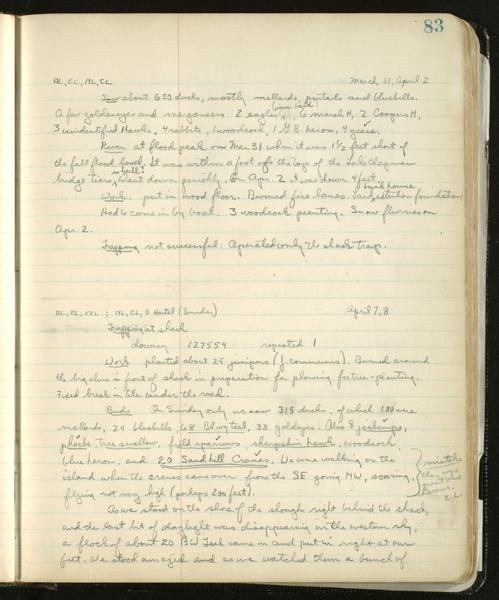 83
AL, EL, NL, CL March 31, April 2
Saw about 650 ducks, mostly mallards, pintails and bluebills.
A few goldeneyes and mergansers. 2 eagles, (imm. bald) 6 marsh H, 2 Coopers H,
3 unidentified Hawks, 4 rabbits, 1 woodcock, 1 G.B. heron, 4 geese.
River at flood peak on Mar 31 when it was 1 1/2 feet short of
the fall flood level. It was within a foot of the top of the Lake Chapman
bridge tiers, still. Went down quickly. On Apr. 2 it was down 4 feet.
Work. put in wood floor. Burned fire lanes. Laid extention foundation, bunk house
Had to come in by boat. 3 woodcock peenting. Snow flurries on
Apr. 2.
Trapping not successful. Operated only the shack trap.
AL, EL, ; NL, CL, O. Hertel (Sunday) April 7, 8
Trapping at shack
downy 127554 repeated 1
Work planted about 25 junipers (J. communis). Burned around
the big elms in front of shack in preparation for plowing for tree-planting.
Fixed break in tile under the road.
Birds On Sunday only we saw 315 ducks, of which 180 were
mallards, 29 bluebills, 68 Bl wg teal, 33 goldeyes. Also 8 jacksnipes,
phoebe, tree swallow, field sparrows, sharpshin hawk, woodcock,
blue heron, and 20 Sandhill Cranes. We were walking on the
island when the cranes came over from the SE going NW, soaring,
flying not very high (perhaps 200 feet).
mistake
they were
great blue
herons.
C.L.
As we stood on the shore of the slough right behind the shack,
and the last bit of daylight was disappearing in the western sky,
a flock of about 20 BW Teal came in and put in right at our
feet. We stood amazed and as we watched them a bunch of